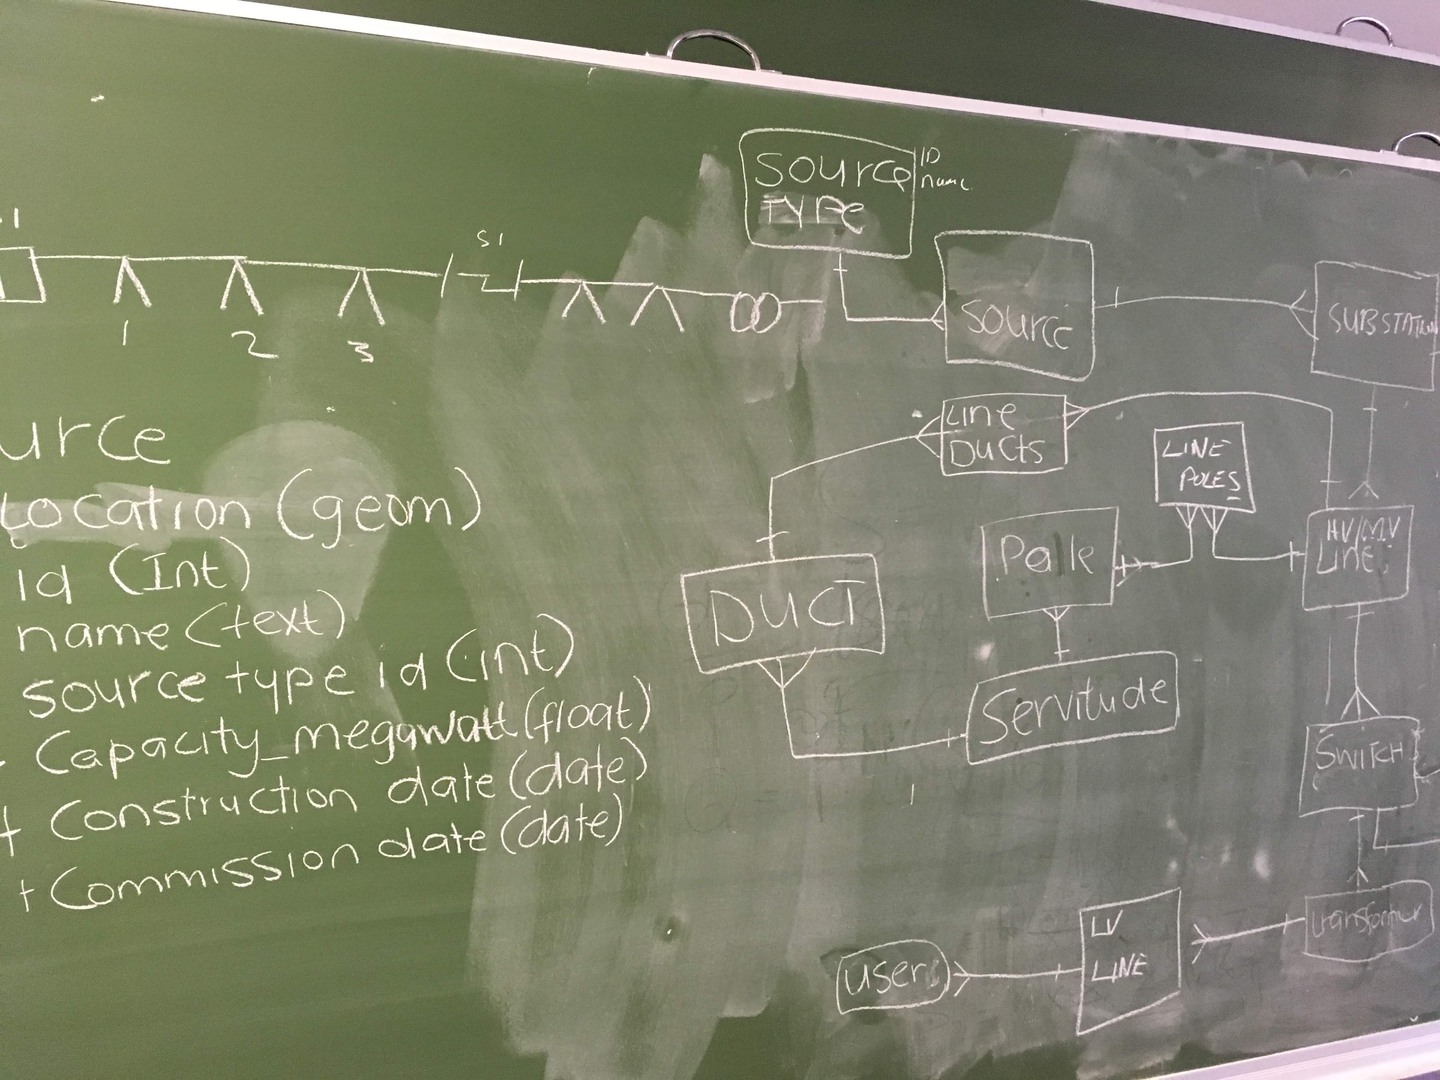 1
S1
1
2
3
urce
Location (geom)
id (Int)
name (text)
source type id (int)
Capacity_megawatt (float)
+ Construction date (date)
+ Commission date (date)
SOURCE
TYPE
ID
name
SOURCE
SUBSTATION
LINE
DUCTS
LINE
POLES
HV/MV
LINE
DUCT
Servitude
SWITCH
transformer
LV
LINE
users